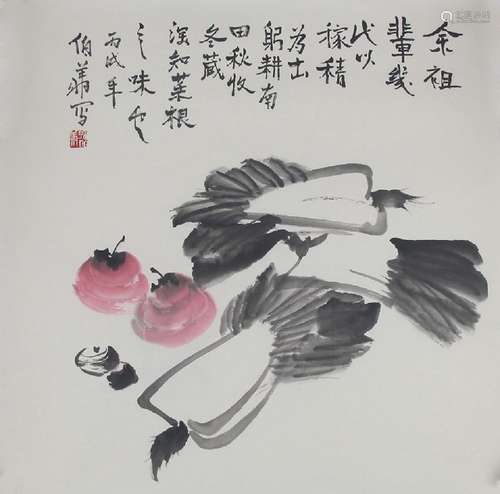 余祖
輩幾
代以
稼穡
為士
躬耕南
田秋收
冬藏
深知菜根
之味也
丙戌年
伯華写